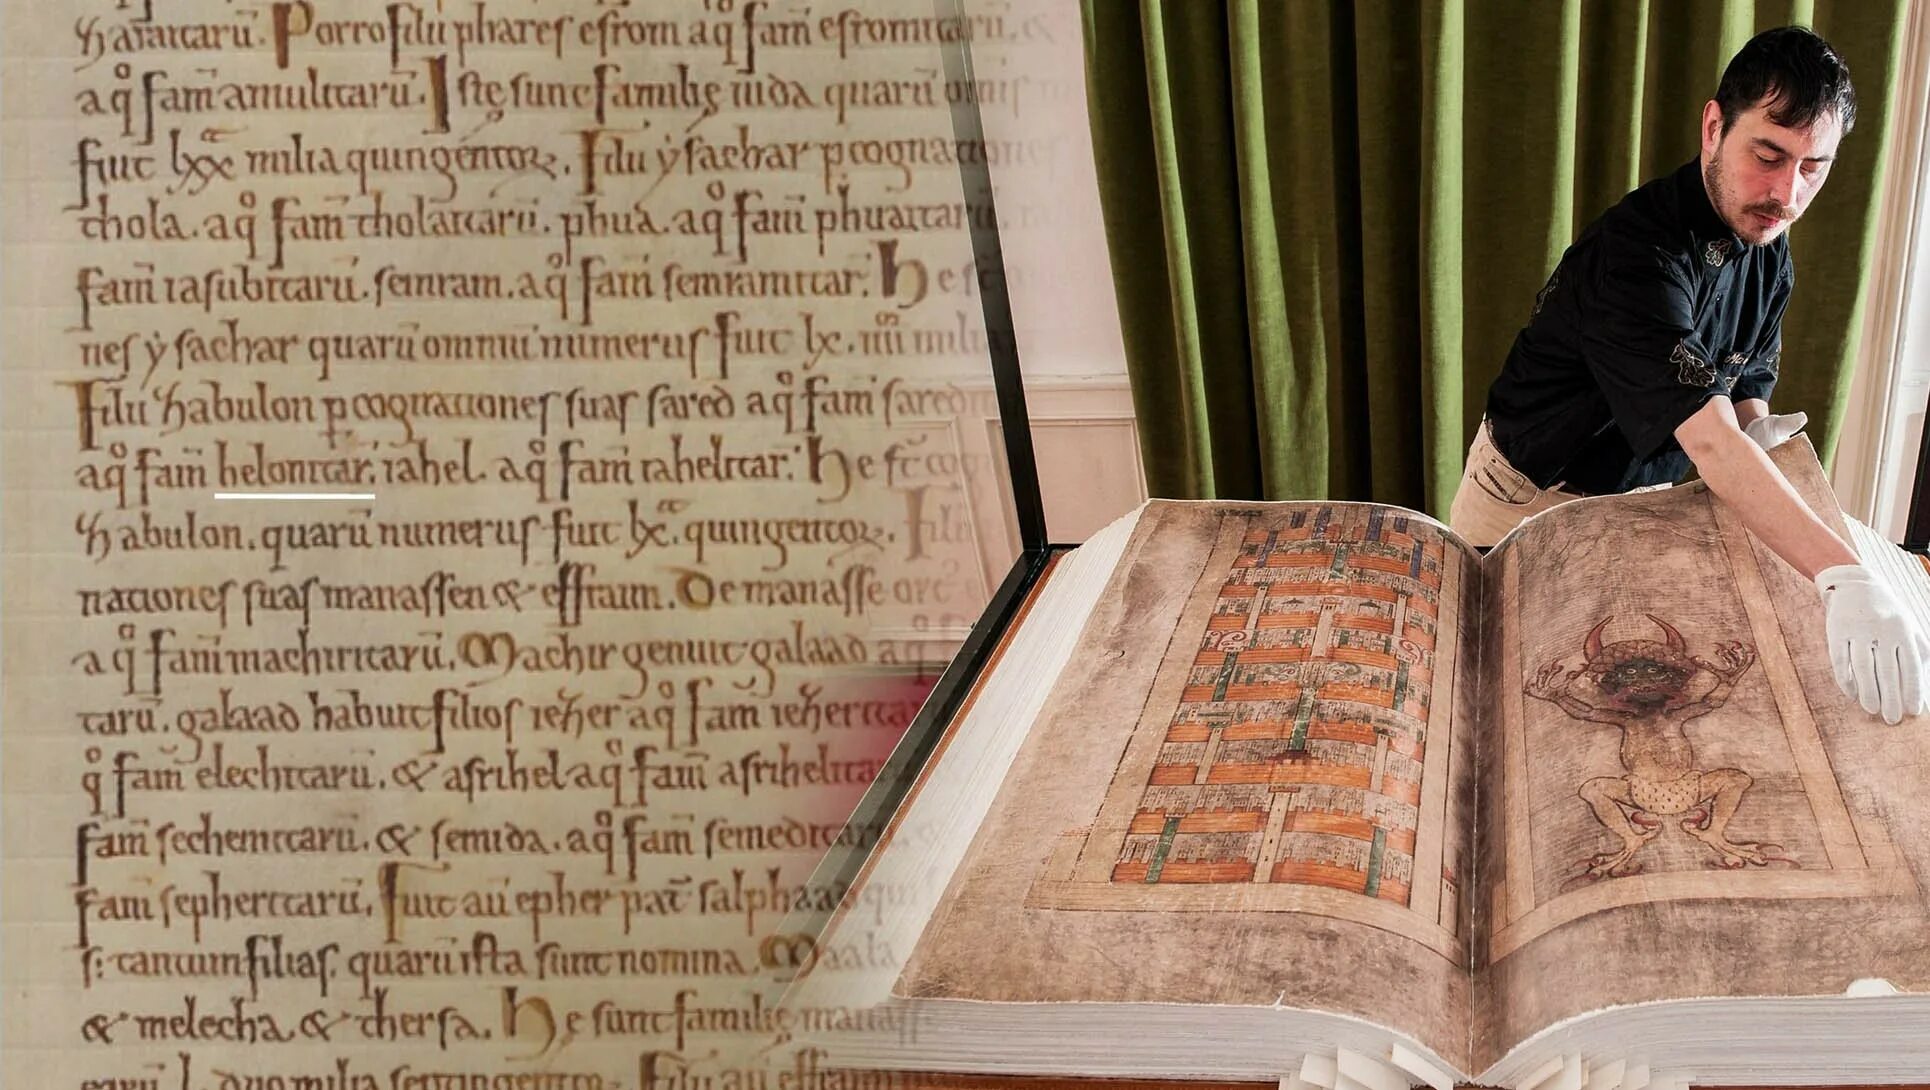 zaraitarū. Porro filii phares esrom aq̊ fam̄ esromitarū. &
aq̊ fam̄ amulitarū. Istę sunt familię iuda quarū
fuit lxx milia quingentoꝝ. Filii ẏsachar ꝑ cognationes
thola. aq̊ fam̄ tholaitarū. phua. aq̊ fam̄ phuaitarū.
fam̄ iasubitarū. semram. aq̊ fam̄ semramitar. He
nes ẏsachar quarū omniū numerus fuit lx. iiii milia
Filii zabulon ꝑ cognationes suas sared aq̊ fam̄ sared
aq̊ fam̄ helonitar. iahel. aq̊ fam̄ iahelitar. He st̄ cog
zabulon. quarū numerus fuit lx. quingentoꝝ. Filii
nationes suas manassen & effraim. De manasse ort
aq̊ fam̄ machiritarū. Machir genuit galaad aq̊
tarū. galaad habuit filios iezer aq̊ fam̄ iezerita
q̊ fam̄ elechitarū. & asrihel aq̊ fam̄ asrihelita
fam̄ sechemitarū. & semida. aq̊ fam̄ semeditarū
fam̄ sepheritarū. Fuit aū epher pat̄ salphaad qui
s: tantum filias. quarū ista sunt nomina. Maala
& melecha. & thersa. He sunt familię manass
l. duo milia septingentoꝝ. Filii aū effraim